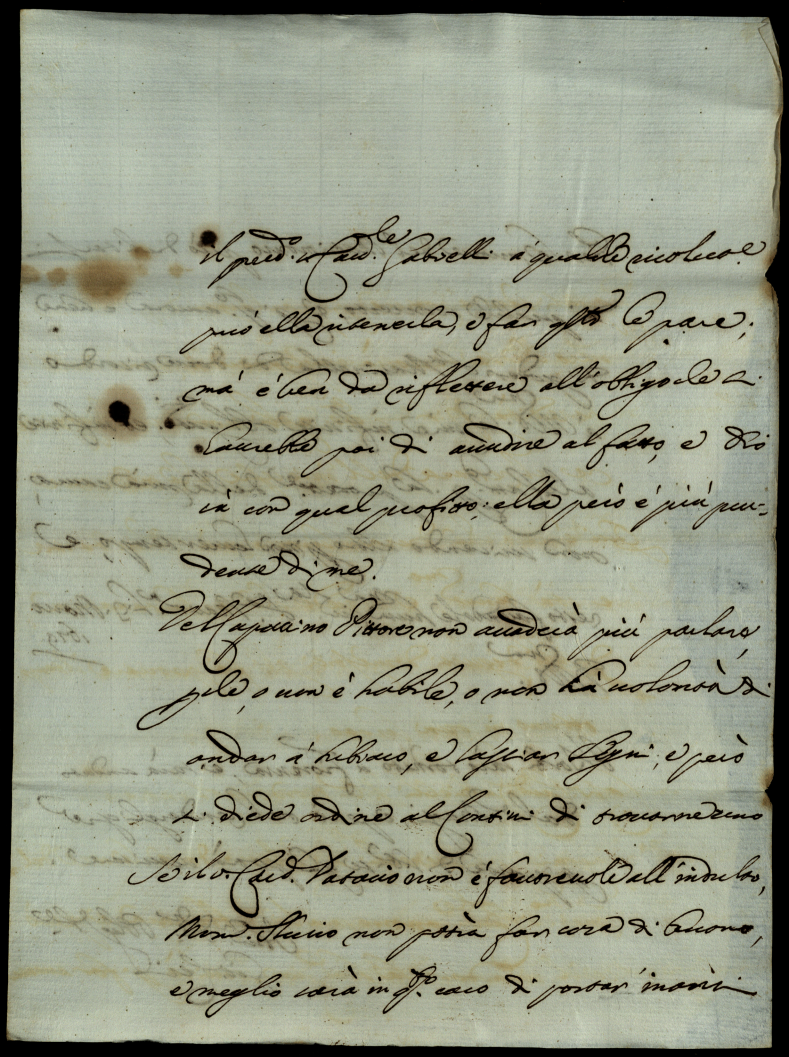 il pred.º s.r Card.le Gabrielli à qualche
può ella ritenerla, e far q.to le pare;
mà è ben da riflettere all'obligo che si
haurebbe poi di accudire al fatto, e Dio
sà con qual profitto; ella però è più pru-
dente di me.
Del Capuccino Pittore non accaderà più parlare,
p.che, o non è habile, o non hà volontà di
andar à Subiaco, e lasciar i; e però
si diede ordine al Contini di trovarne uno
Se il s.r Card. non è favorevole all'indulto,
Mons. non potrà far cosa di buono,
e meglio sarà in q.to caso di portar inanzi